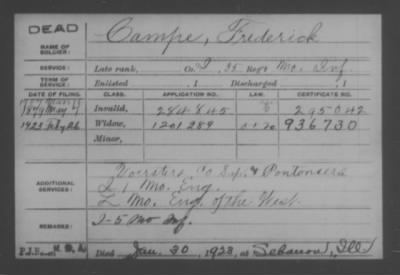 DEAD
NAME OF SOLDIER: Campe, Frederick
SERVICE: Late rank, Co. I, 35 Reg't Mo. Inf.
TERM OF SERVICE: Enlisted , 1 Discharged , 1
DATE OF FILING. CLASS. APPLICATION NO. LAW. CERTIFICATE NO.
1879 May Invalid, 284845 295042
1923 Feby 26 Widow, 1201289 936730
Minor,
ADDITIONAL SERVICES: Voerster's Co Sap. & Pontoniers
I 1 Mo. Eng.
Mo. Eng. of the West.
REMARKS: I-5 Mo Inf.
Died Jan. 30, 1923, at Lebanon, Ill